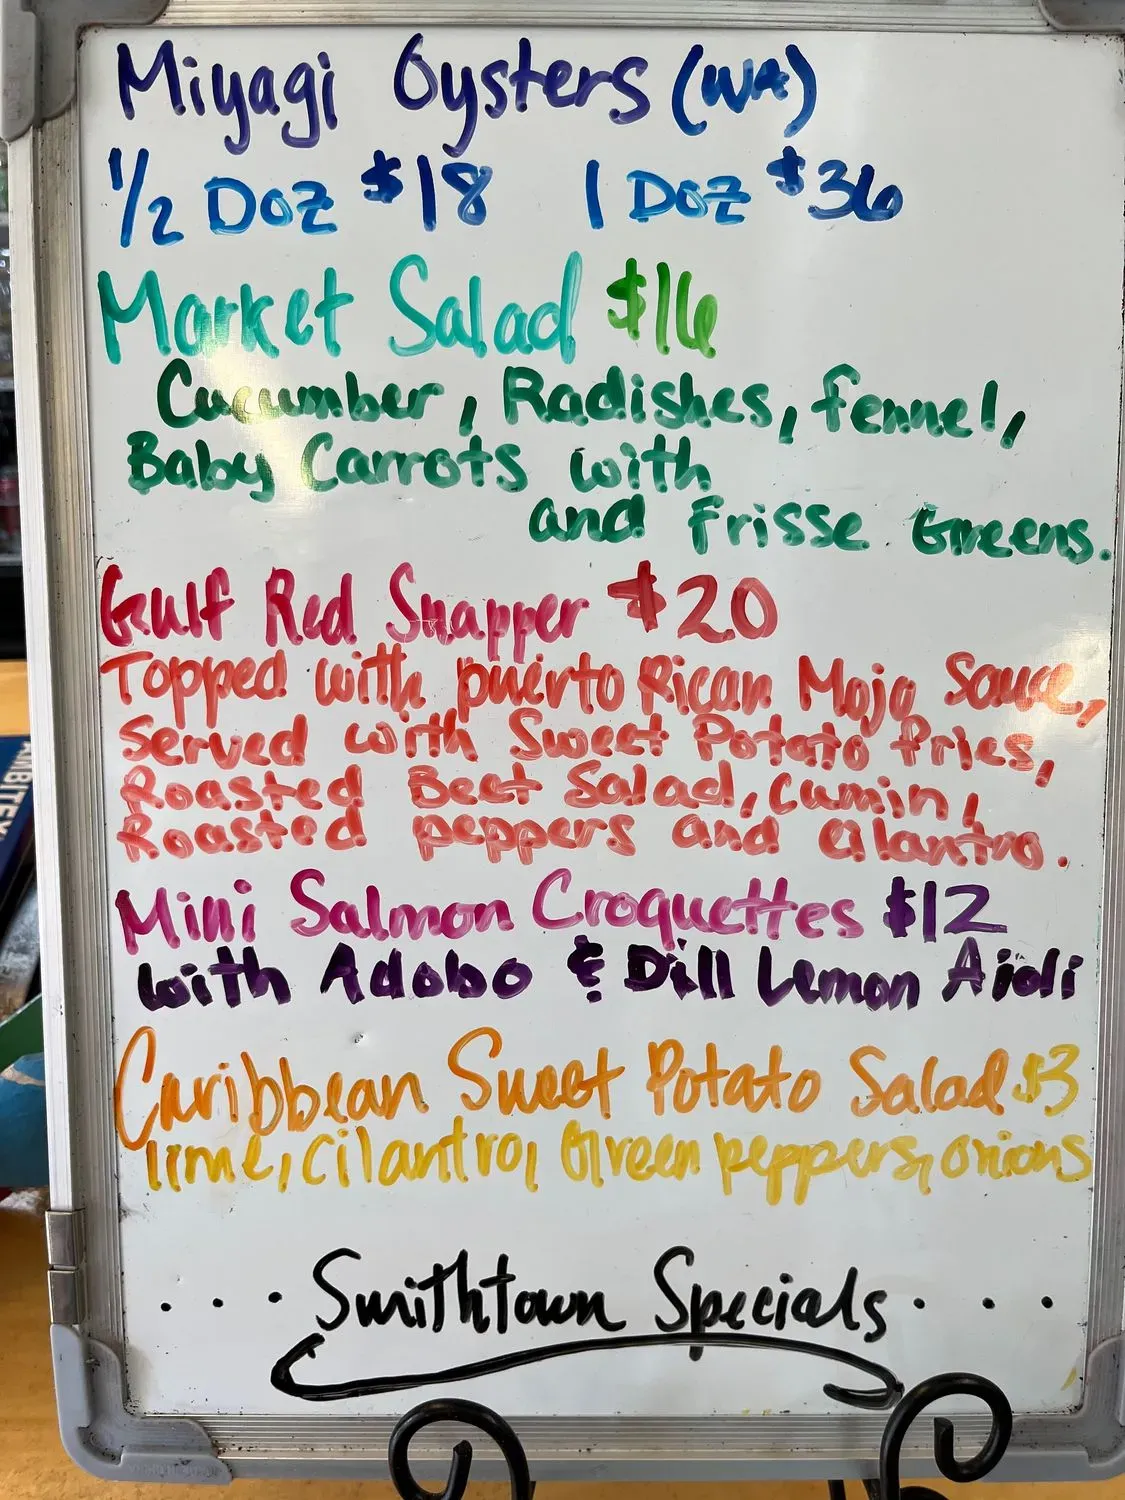 Miyagi Oysters (WA)
1/2 Doz $18 1 Doz $36
Market Salad $16
Cucumber, Radishes, fennel,
Baby Carrots with
and Frisse Greens.
Gulf Red Snapper $20
Topped with puerto Rican Mojo Sauce,
Served with Sweet Potato fries,
Roasted Beet Salad, Cumin,
Roasted peppers and Cilantro.
Mini Salmon Croquettes $12
with Adobo & Dill Lemon Aioli
Caribbean Sweet Potato Salad $3
lime, cilantro, Green peppers, onions
. . . Smithtown Specials . . . .